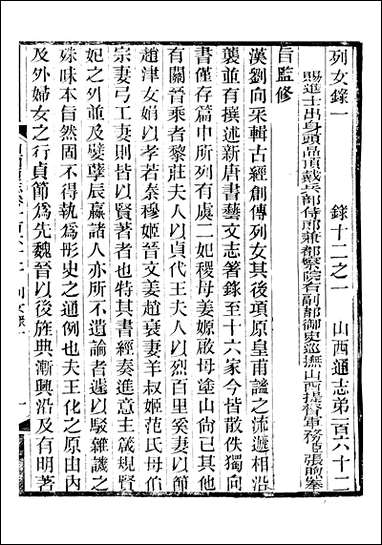 列女錄一　錄十二之一　山西通志弟一百六十二
賜進士出身頭品頂戴兵部侍郎兼都察院右副都御史巡撫山西提督軍務臣張煦奉
旨監修
漢劉向采輯古經創傳列女其後項原皇甫謐之流遞相沿
襲並有撰述新唐書藝文志著錄至十六家今皆散佚獨向
書僅存篇中所列有虞二妃稷母姜嫄啟母塗山尙已其他
有關晉乘者黎莊夫人以貞代王夫人以烈百里奚妻以節
趙津女娟以孝若秦穆姬晉文姜趙衰妻羊叔姬范氏母伯
宗妻弓工妻則皆以賢著者也特其書經奏進意主箴規賢
妃之外並及孼孽辰嬴諸人亦所不遺論者遽以駁雜譏之
殊昧本自然固不得執爲彤史之通例也夫王化之原由內
及外婦女之行貞節爲先魏晉以後旌典漸興沿及有明著
列女錄一
一